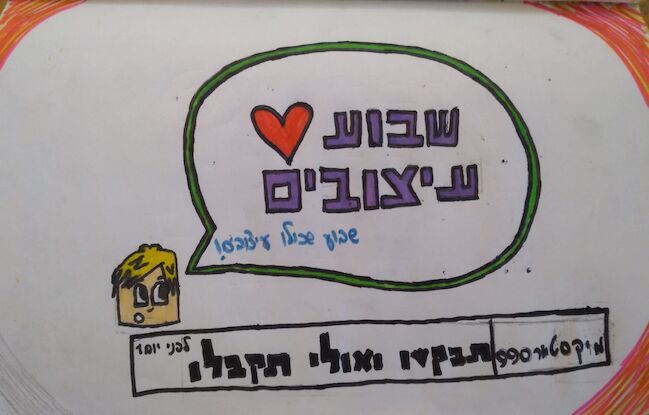 שבוע
עיצובים
שבוע שכולו עיצובים!
תבקשו ואולי תקבלו
לפני יום1